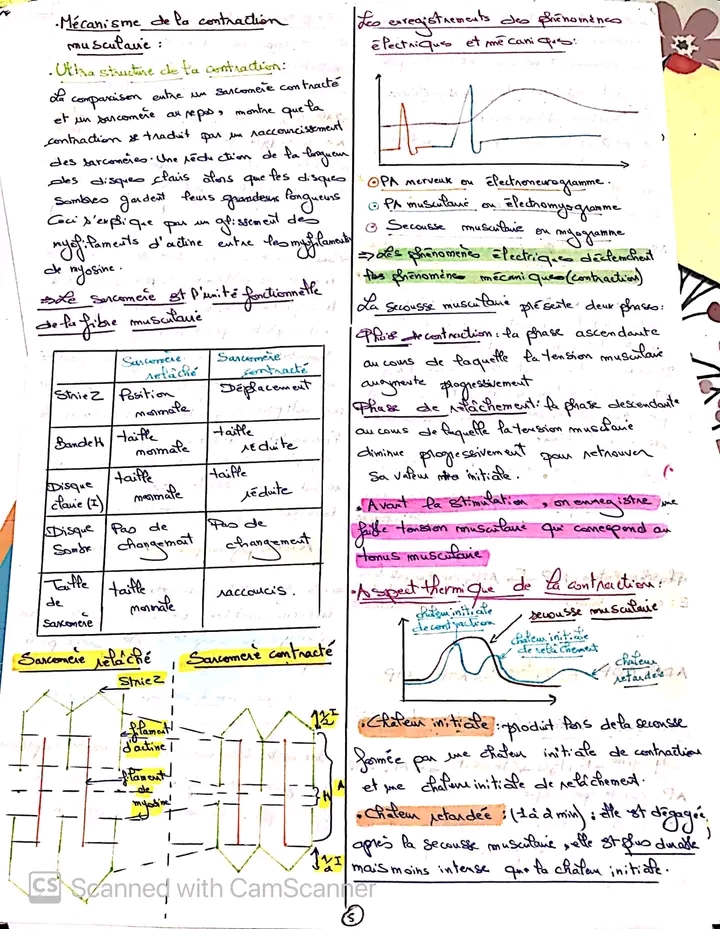 . Mécanisme de la contraction
musculaire :
. Ultra structure de la contraction :
La comparaison entre un sarcomère contracté
et un sarcomère au repos, montre que la
contraction se traduit par un raccourcissement
des sarcomères. Une réduction de la longueur
des disques clairs alors que les disques
Sombres gardent leurs grandeurs longueurs
Ceci s'explique par un glissement des
myofilaments d'actine entre les myofilaments
de myosine.
=> Le sarcomère est l'unité fonctionnelle
de la fibre musculaire
Sarcomère relâché
Sarcomère contracté
Strie Z
Position normale
Déplacement
Bande H
taille normale
taille réduite
Disque claire (I)
taille normale
taille réduite
Disque Sombre
Pas de changement
Pas de changement
Taille de sarcomère
taille normale
raccourcis.
Sarcomère relâché
Sarcomère contracté
Strie Z
filament d'actine
filament de myosine
1/2 I
A
H
1/2 I
Les enregistrements des phénomènes
électriques et mécaniques :
① PA nerveux ou électroneurogramme.
② PA musculaire ou électromyogramme
③ Secousse musculaire ou myogramme
=> Les phénomènes électriques déclenchent
les phénomènes mécaniques (contraction)
La secousse musculaire présente deux phases :
Phase de contraction : la phase ascendante
au cours de laquelle la tension musculaire
augmente progressivement
Phase de relâchement : la phase descendante
au cours de laquelle la tension musculaire
diminue progressivement pour retrouver
Sa valeur initiale.
. Avant la stimulation, on enregistre une
faible tension musculaire qui correspond au
tonus musculaire
. Aspect thermique de la contraction :
chaleur initiale de contraction
secousse musculaire
chaleur initiale de relâchement
chaleur retardée
. Chaleur initiale : produit lors de la secousse
formée par une chaleur initiale de contraction
et une chaleur initiale de relâchement.
. Chaleur retardée : (1 à 2 min) : elle est dégagée
après la secousse musculaire, elle est plus durable
mais moins intense que la chaleur initiale.
5
CS Scanned with CamScanner